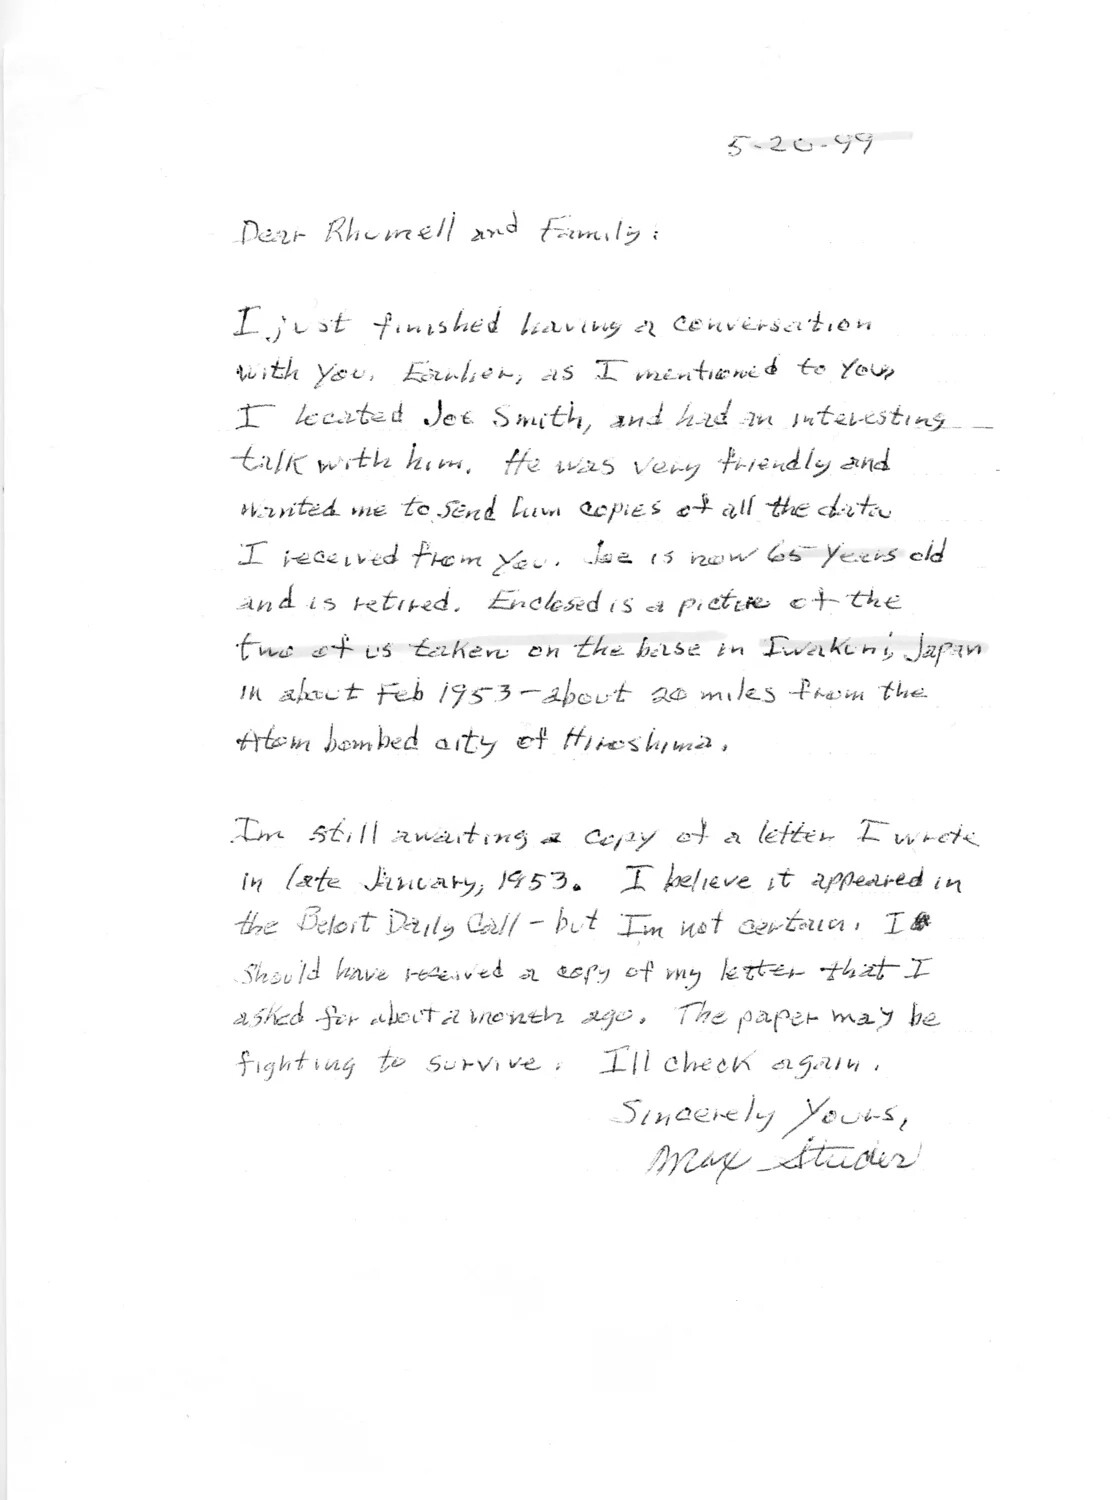 5-20-99
Dear Rhumell and Family:
I just finished having a conversation
with you. Earlier, as I mentioned to you,
I located Joe Smith, and had an interesting
talk with him. He was very friendly and
wanted me to send him copies of all the data
I received from you. Joe is now 65 years old
and is retired. Enclosed is a picture of the
two of us taken on the base in Iwakuni, Japan
in about Feb 1953 - about 20 miles from the
Atom bombed city of Hiroshima.
Im still awaiting a copy of a letter I wrote
in late January, 1953. I believe it appeared in
the Beloit Daily Call - but Im not certain. I
should have received a copy of my letter that I
asked for about a month ago. The paper may be
fighting to survive. Ill check again.
Sincerely Yours,
Max Studer